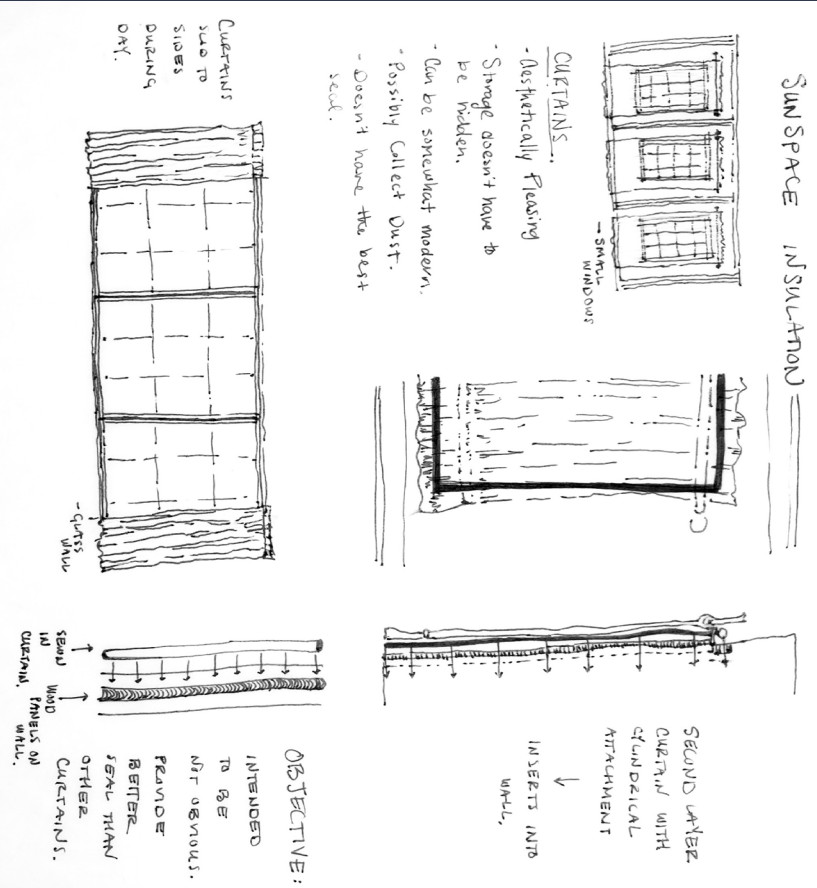 SUNSPACE INSULATION
- SMALL
WINDOWS
CURTAINS.,
- Aesthetically Pleasing
· Storage doesn't have to
be hidden.
· Can be somewhat modern.
· Possibly Collect Dust.
- Doesn't have the best
seal.
CURTAINS
SLID TO
SIDES
DURING
DAY.
- GLASS
WALL
SECOND LAYER
CURTAIN WITH
CYLINDRICAL
ATTACHMENT
↓
INSERTS INTO
WALL.
OBJECTIVE:
INTENDED
TO BE
NOT OBVIOUS.
PROVIDE
BETTER
SEAL THAN
OTHER
CURTAINS.
SEWN
IN
CURTAIN.
WOOD
PANELS ON
WALL.